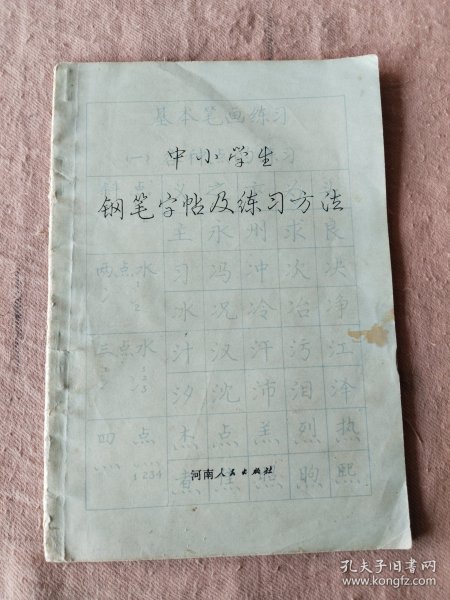 基本笔画练习
中小学生
钢笔字帖及练习方法
水 州 求 良
两点水 习 冯 冲 次 决
冰 况 冷 冶 净
三点水 汁 汉 汗 污 江
汐 沈 沛 泪 泽
四点 杰 点 羔 烈 热
煮 焦 照 煦 熙
1234
河南人民出版社
孔夫子旧书网
www.kongfz.com